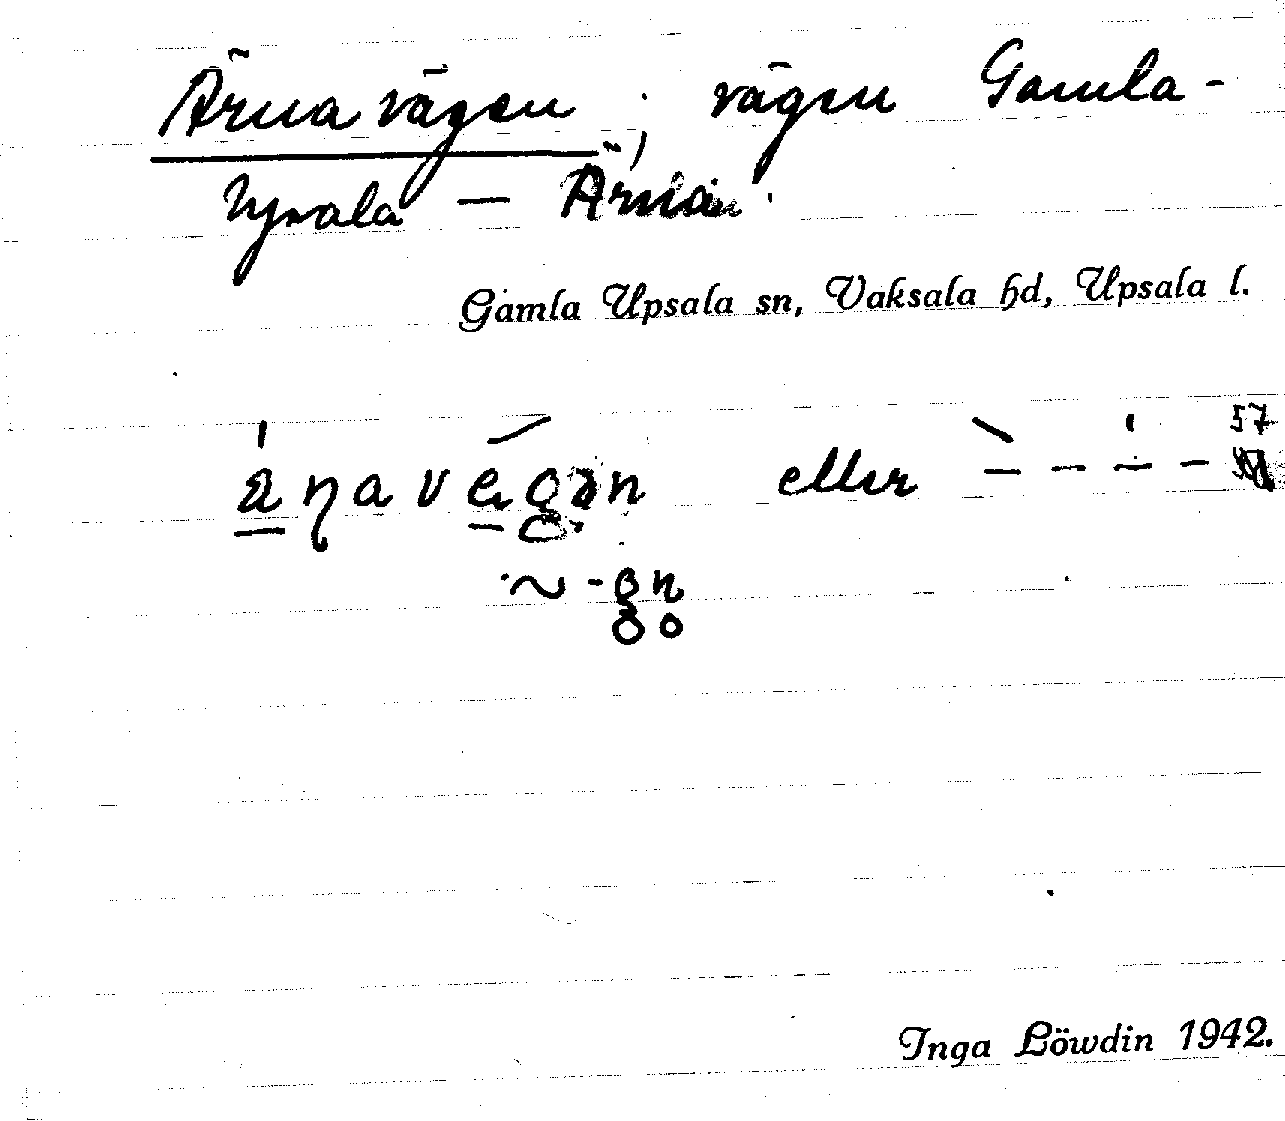 Ärnavägen ; vägen Gamla-
Upsala — Ärna.
Gamla Upsala sn, Vaksala hd, Upsala l.
eller — — — —57
Inga Löwdin 1942.